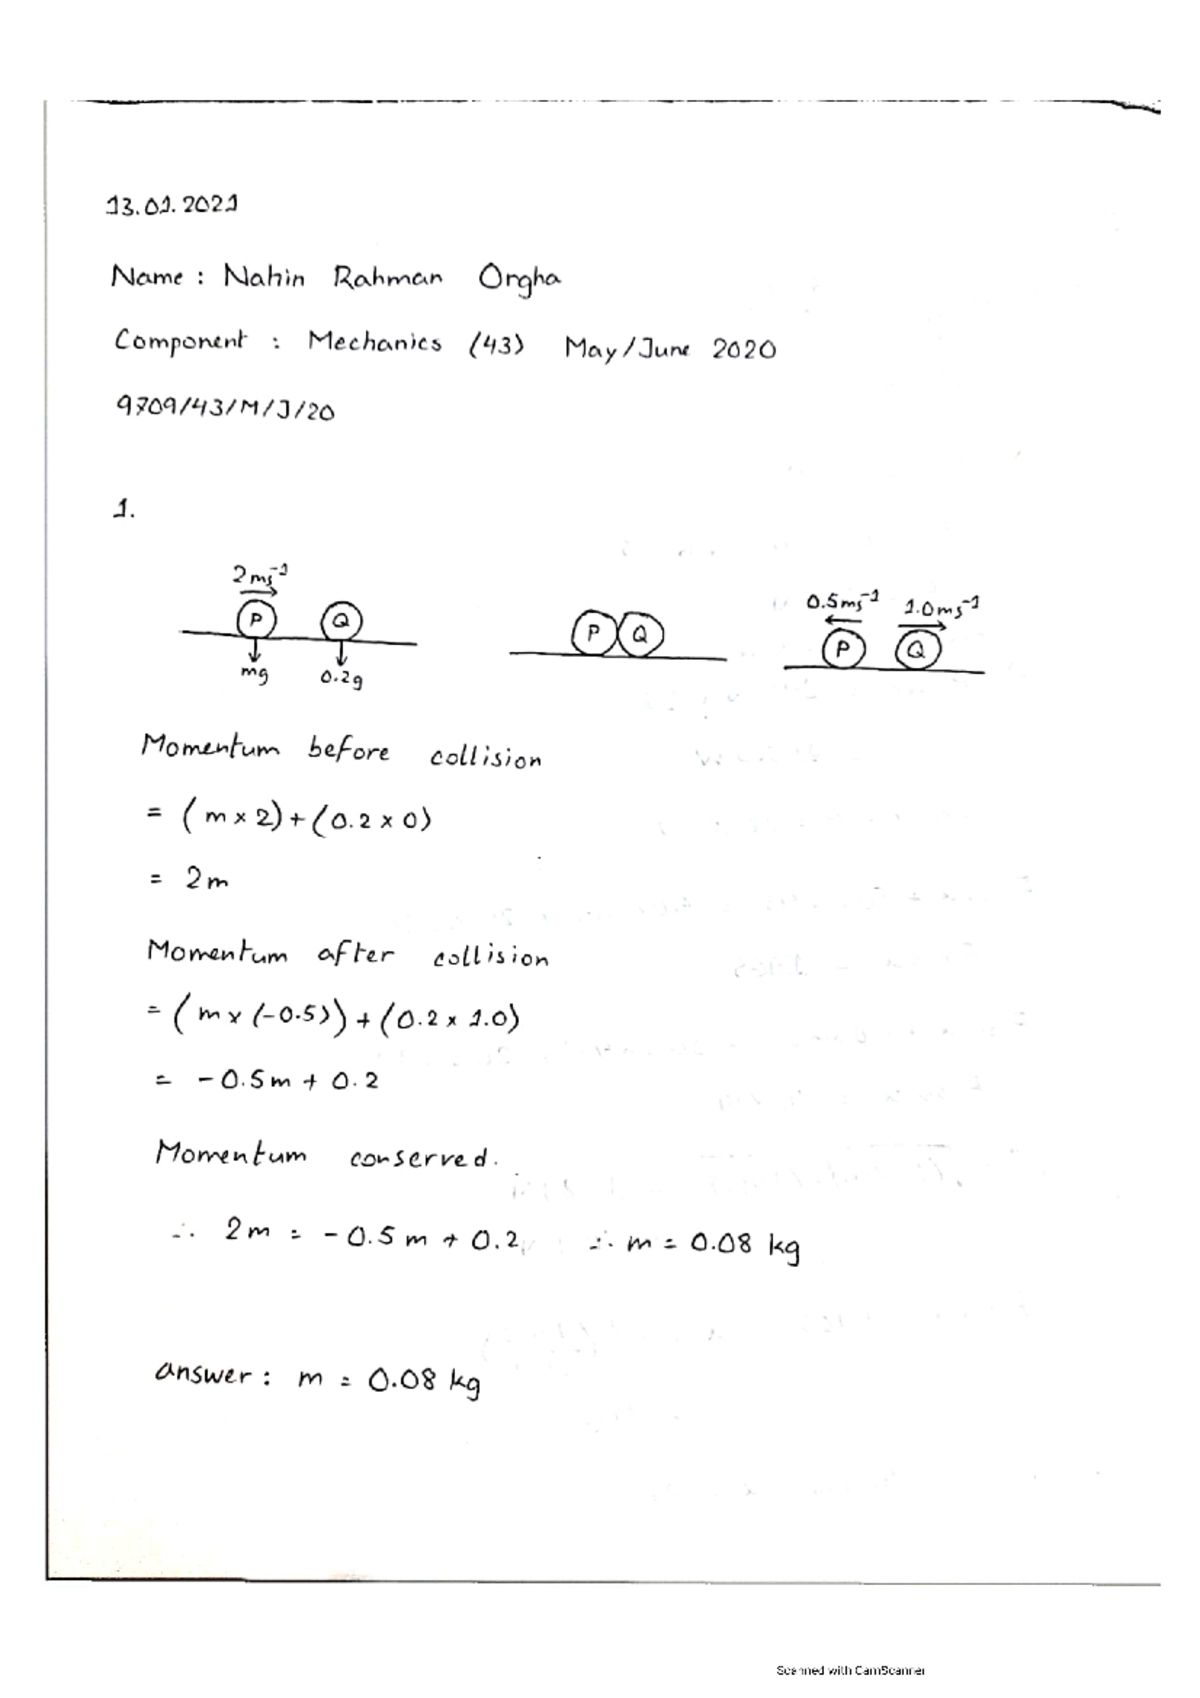 13.01.2021
Name : Nahin Rahman Orgha
Component : Mechanics (43) May/June 2020
9709/43/M/J/20
1.
2ms⁻¹
P Q
mg 0.2g
P Q
0.5ms⁻¹ 1.0ms⁻¹
P Q
Momentum before collision
= (m x 2) + (0.2 x 0)
= 2m
Momentum after collision
= (m x (-0.5)) + (0.2 x 1.0)
= -0.5m + 0.2
Momentum conserved.
∴ 2m = -0.5m + 0.2 ∴ m = 0.08 kg
answer : m = 0.08 kg
Scanned with CamScanner